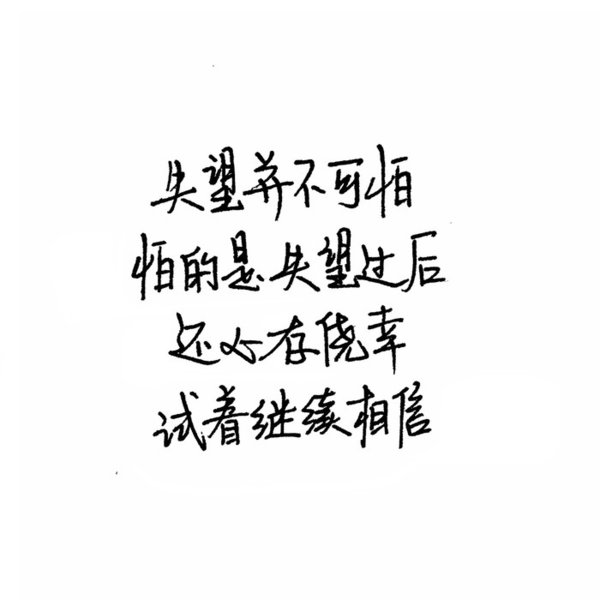 失望并不可怕
怕的是失望过后
还心存侥幸
试着继续相信